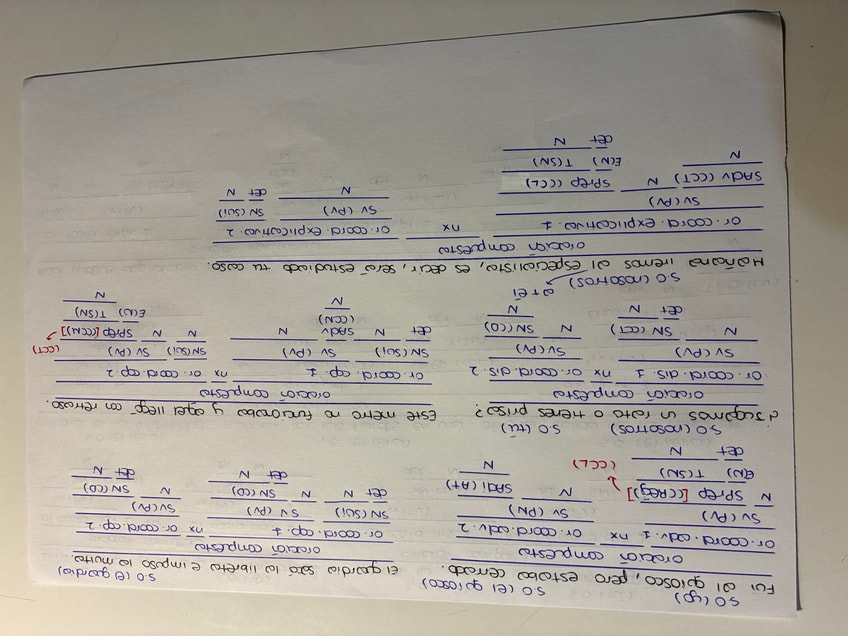 SO (yo) SO (el quiosco)
Fui al quiosco, pero estaba cerrado.
oración compuesta
or. coord. adv. 1 nx or. coord. adv. 2
SV (PV) SV (PN)
N SPrep [(CReg)] N SAdj (At)
E(N) T(SN) (CCL) N
det N
SO (el guardia)
El guardia sacó la libreta e impuso la multa.
oración compuesta
or. coord. cop. 1 nx or. coord. cop. 2
SN (SUJ) SV (PV) SV (PV)
det N N SN (CD) N SN (CD)
det N det N
SO (nosotros) SO (tú)
¿Jugamos un rato o tienes prisa?
oración compuesta
or. coord. dis. 1 nx or. coord. dis. 2
SV (PV) SV (PV)
N SN (CCT) N SN (CD)
det N N
Este metro no funcionaba y aquel llegó con retraso.
oración compuesta
or. coord. cop. 1 nx or. coord. cop. 2
SN (SUJ) SV (PV) SN (SUJ) SV (PV) (CCT)
det N SAdv N N N SPrep [(CCM)]
(CCN) E(N) T(SN)
N N
SO (nosotros) a + él
Mañana iremos al especialista, es decir, será estudiado tu caso.
oración compuesta
or. coord. explicativa. 1 nx or. coord. explicativa. 2
SV (PV) SV (PV) SN (SUJ)
SAdv (CCT) N SPrep (CCL) N det N
N E(N) T(SN)
det N